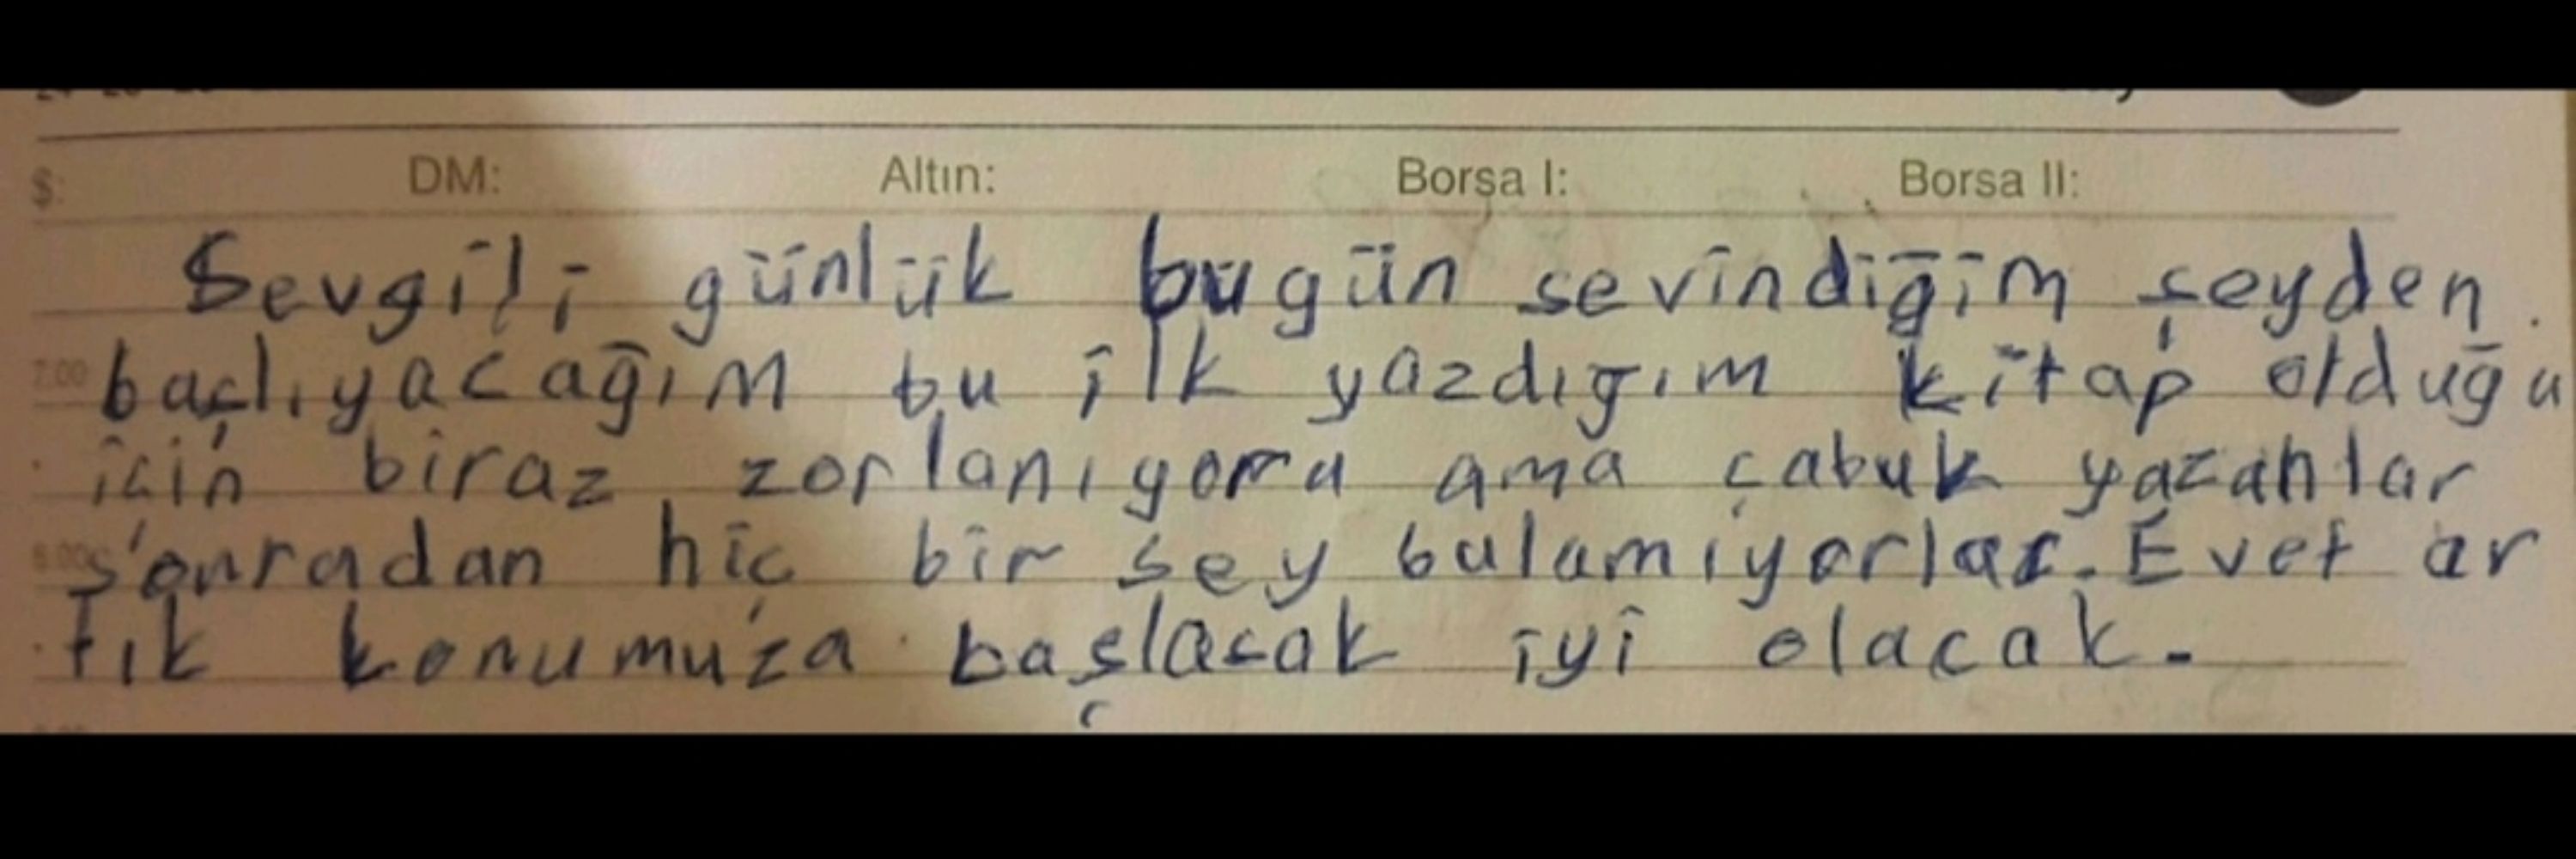 $: DM: Altın: Borsa I: Borsa II:
Sevgili günlük bugün sevindiğim şeyden
7:00 başlıyacağım bu ilk yazdığım kitap olduğu
için biraz zorlanıyoru ama çabuk yazanlar
8:00 sonradan hiç bir şey bulamıyorlar. Evet ar
tık konumuza başlasak iyi olacak.